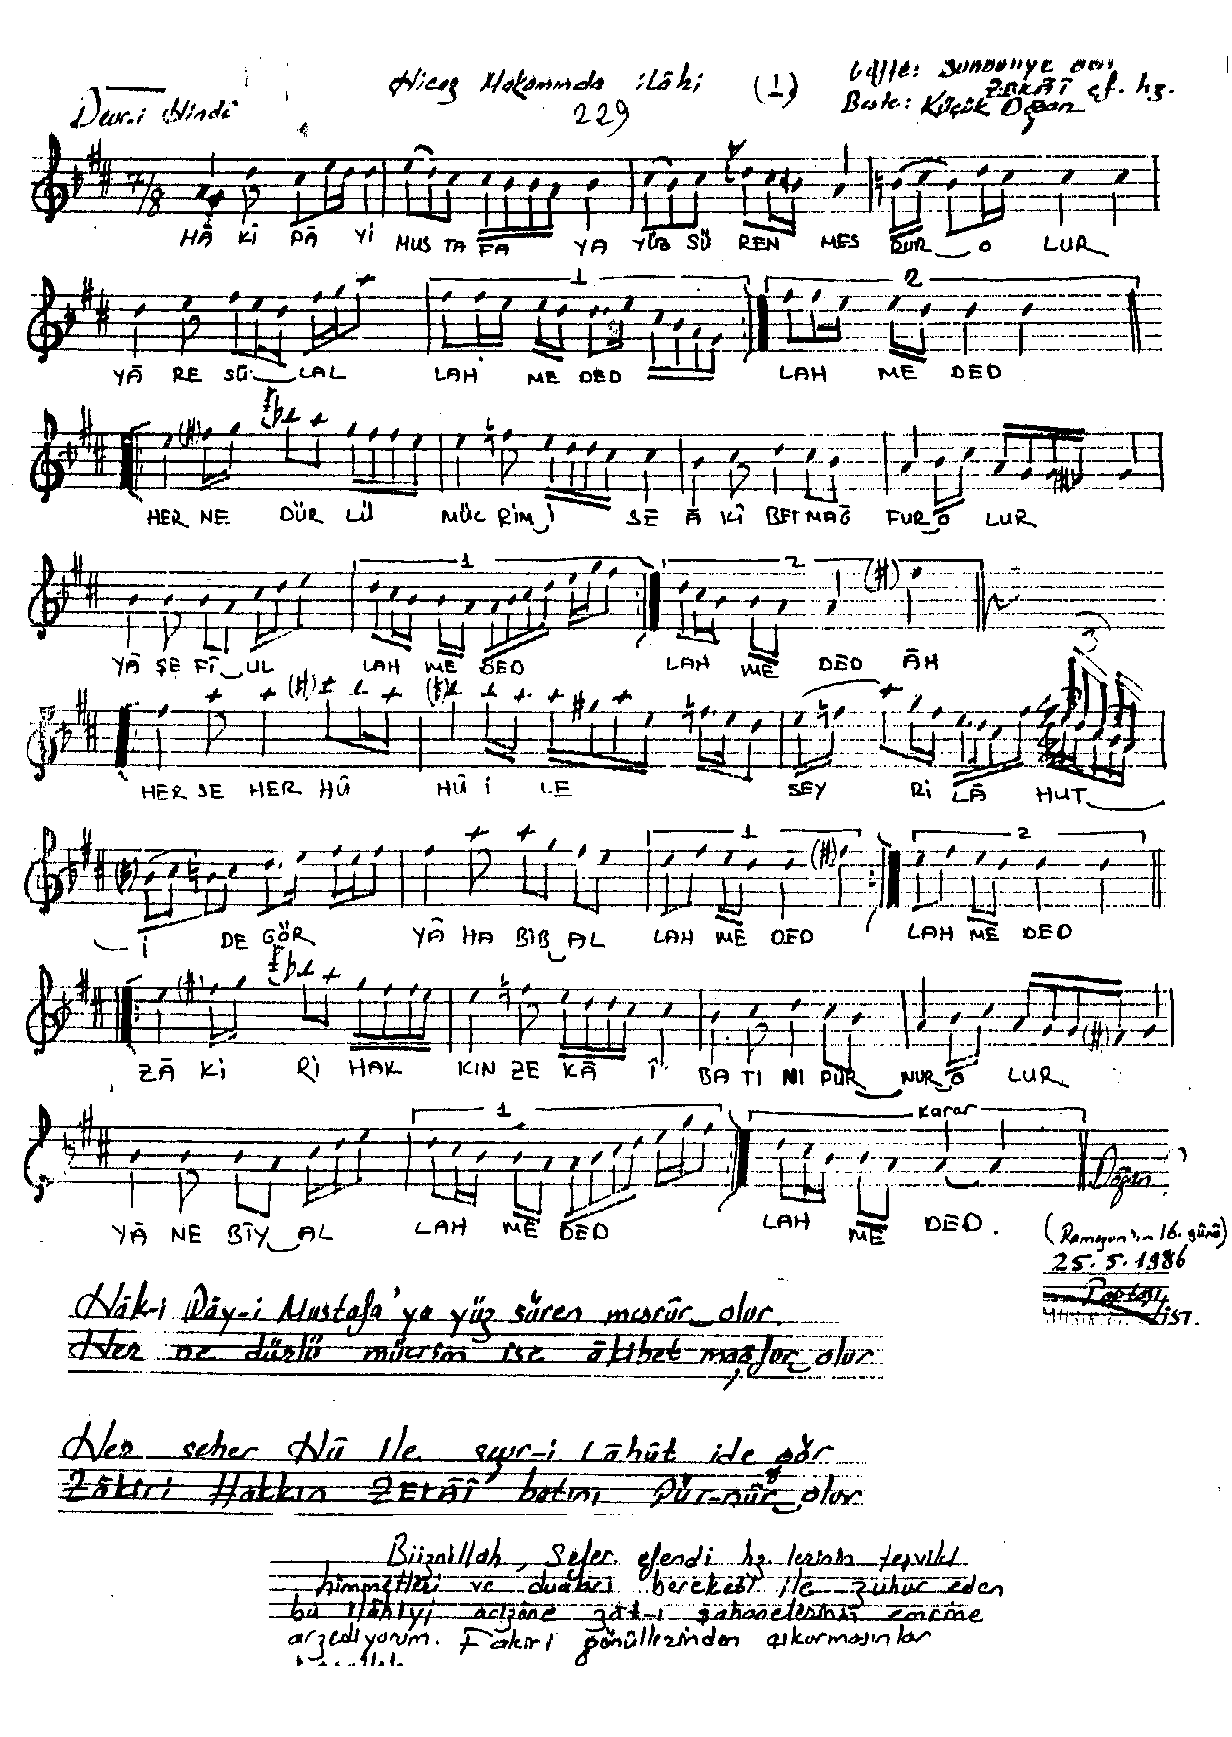 Hicaz Makamında ilâhi (1)
229
Devr-i Hindî
Güfte:
ZEKÂİ ef. hz.
Beste: Küçük
7/8
HÂ KÎ PÂ Yİ MUS TA FA YA YÜZ SÜ REN MES RUR O LUR
1 2
YÂ RE SÛ LAL LAH ME DED LAH ME DED
HER NE DÜR LÜ MÜC RİM İ SE Â KİBET MAĞ FUR O LUR
1 2
YÂ ŞE FÎ UL LAH ME DED LAH ME DED ÂH
3
HER SE HER HÛ HÛ İ LE SEY Rİ LÂ HUT
1 2
İ DE GÖR YÂ HA BİB AL LAH ME DED LAH ME DED
ZÂ Kİ Rİ HAK KIN ZE KÂ Î BA TI NI PÜR NUR O LUR
1 Karar
YÂ NE BİY AL LAH ME DED LAH ME DED.
Doğan
(Ramazan'ın 16. günü)
25.5.1986
İST.
Hâk-i Pây-i Mustafa'ya yüz süren mesrûr olur.
Her ne dürlü mücrim ise âkibet mağfur olur
Her seher Hû ile seyr-i Lâhût ide gör
Zâkiri Hakkın ZEKÂÎ batını Pür-nûr olur.
Biiznillah, Sefer efendi hz. lerinin teşvikt
himmetleri ve duaları bereketi ile zuhur eden
bu ilâhiyi acizane zât-ı şahanelerinin emrine
arzediyorum. Fakiri gönüllerinden çıkarmasınlar